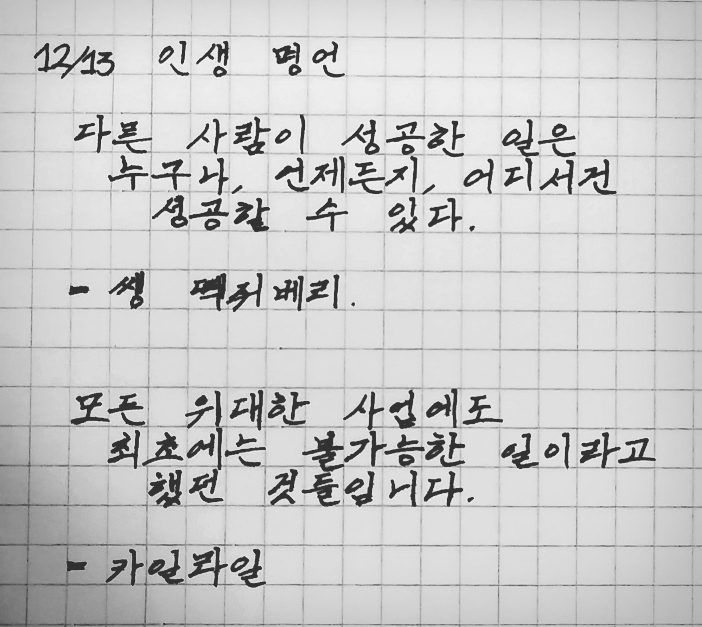 12/13 인생 명언
다른 사람이 성공한 일은
누구나, 언제든지, 어디서건
성공할 수 있다.
- 쌩 떽쥐베리.
모든 위대한 사업에도
최초에는 불가능한 일이라고
했던 것들입니다.
- 카일라일